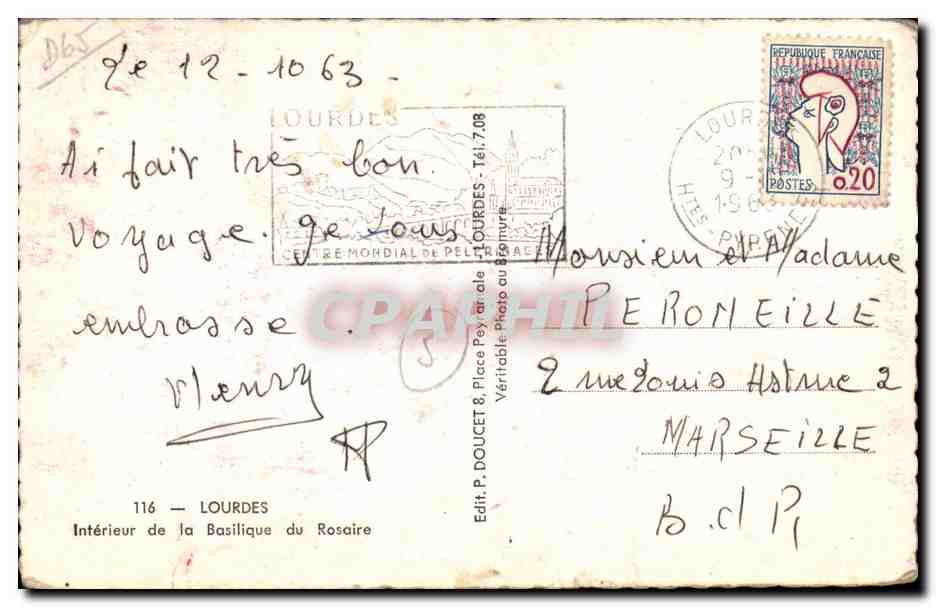 D65
Le 12-10 63-
Ai fait très bon
voyage. Je vous
embrasse.
Henry
116 — LOURDES
Intérieur de la Basilique du Rosaire
LOURDES
CENTRE MONDIAL DE PELERINAGE
CPARAMA
5
Edit. P. DOUCET 8, Place Peyramale - LOURDES - Tél. 7.08
Véritable Photo au Bromure
LOURDES
9
1963
HTES-PYRENEES
REPUBLIQUE FRANÇAISE
POSTES 0.20
Monsieur et Madame
PERONEILLE
2
MARSEILLE
B. d